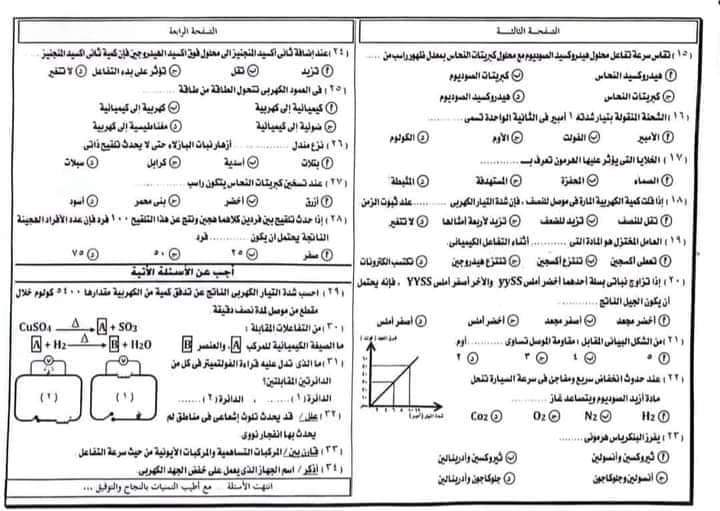 الصفحة الثالثة
١٥) تقاس سرعة تفاعل محلول هيدروكسيد الصوديوم مع محلول كبريتات النحاس بمعدل ظهور راسب من ......
أ هيدروكسيد النحاس ب كبريتات الصوديوم
ج كبريتات النحاس د هيدروكسيد الصوديوم
١٦) الشحنة المنقولة بتيار شدته ١ أمبير في الثانية الواحدة تسمى ..........
أ الأمبير ب الفولت ج الأوم د الكولوم
١٧) الخلايا التي يؤثر عليها الهرمون تعرف بـ ..........
أ الصماء ب المحفزة ج المستهدفة د المثبطة
١٨) إذا قلت كمية الكهربية المارة في موصل للنصف ، فإن شدة التيار الكهربي .......... عند ثبوت الزمن
أ تقل للنصف ب تزيد للضعف ج تزيد لأربعة أمثالها د لا تتغير
١٩) العامل المختزل هو المادة التي .......... أثناء التفاعل الكيميائي.
أ تعطى أكسجين ب تنتزع أكسجين ج تنتزع هيدروجين د تكتسب الكترونات
٢٠) إذا تزاوج نباتي بسلة أحدهما أخضر أملس yySS والآخر أصفر أملس YYSS ، فإنه يحتمل
أن يكون الجيل الناتج ..........
أ أخضر مجعد ب أصفر مجعد ج أخضر أملس د أصفر أملس
٢١) من الشكل البياني المقابل : مقاومة الموصل تساوى .......... أوم
أ ٥ ب ٤ ج ٣ د ٢
٢٢) عند حدوث انخفاض سريع ومفاجئ في سرعة السيارة تنحل
مادة أزيد الصوديوم ويتصاعد غاز ..........
أ H2 ب N2 ج O2 د Co2
شدة التيار (أمبير)
٢٣) يفرز البنكرياس هرموني ..........
أ ثيروكسين وأنسولين ب ثيروكسين وأدرينالين
ج أنسولين وجلوكاجون د جلوكاجون وأدرينالين
الصفحة الرابعة
٢٤) عند إضافة ثاني أكسيد المنجنيز إلى محلول فوق أكسيد الهيدروجين فإن كمية ثاني أكسيد المنجنيز
أ تزيد ب تقل ج تؤثر على بدء التفاعل د لا تتغير
٢٥) في العمود الكهربي تتحول الطاقة من طاقة ..........
أ كيميائية إلى كهربية ب كهربية إلى كيميائية
ج ضوئية إلى كيميائية د مغناطيسية إلى كهربية
٢٦) نزع مندل .......... أزهار نبات البازلاء حتى لا يحدث تلقيح ذاتي
أ بتلات ب أسدية ج كرابل د سبلات
٢٧) عند تسخين كبريتات النحاس يتكون راسب ..........
أ أزرق ب أخضر ج بني محمر د أسود
٢٨) إذا حدث تلقيح بين فردين كلاهما هجين ونتج عن هذا التلقيح ١٠٠ فرد فإن عدد الأفراد الهجينة
الناتجة يحتمل أن يكون .......... فرد
أ صفر ب ٢٥ ج ٥٠ د ٧٥
أجب عن الأسئلة الآتية
٢٩) احسب شدة التيار الكهربي الناتج عن تدفق كمية من الكهربية مقدارها ٥٤٠٠ كولوم خلال
مقطع من موصل لمدة نصف دقيقة
٣٠) من التفاعلات المقابلة :
CuSO4 —Δ→ A + SO3
ما الصيغة الكيميائية للمركب A ، والعنصر B
A + H2 —Δ→ B + H2O
٣١) ما الذي تدل عليه قراءة الفولتميتر في كل من
الدائرتين المقابلتين؟
الدائرة (١) .......... الدائرة (٢) ..........
V
(١)
V
(٢)
٣٢) علل / قد يحدث تلوث إشعاعى في مناطق لم
يحدث بها انفجار نووي
٣٣) قارن بين / المركبات التساهمية والمركبات الأيونية من حيث سرعة التفاعل.
٣٤) أذكر / اسم الجهاز الذي يعمل على خفض الجهد الكهربي.
انتهت الأسئلة ... مع أطيب التمنيات بالنجاح والتوفيق ...